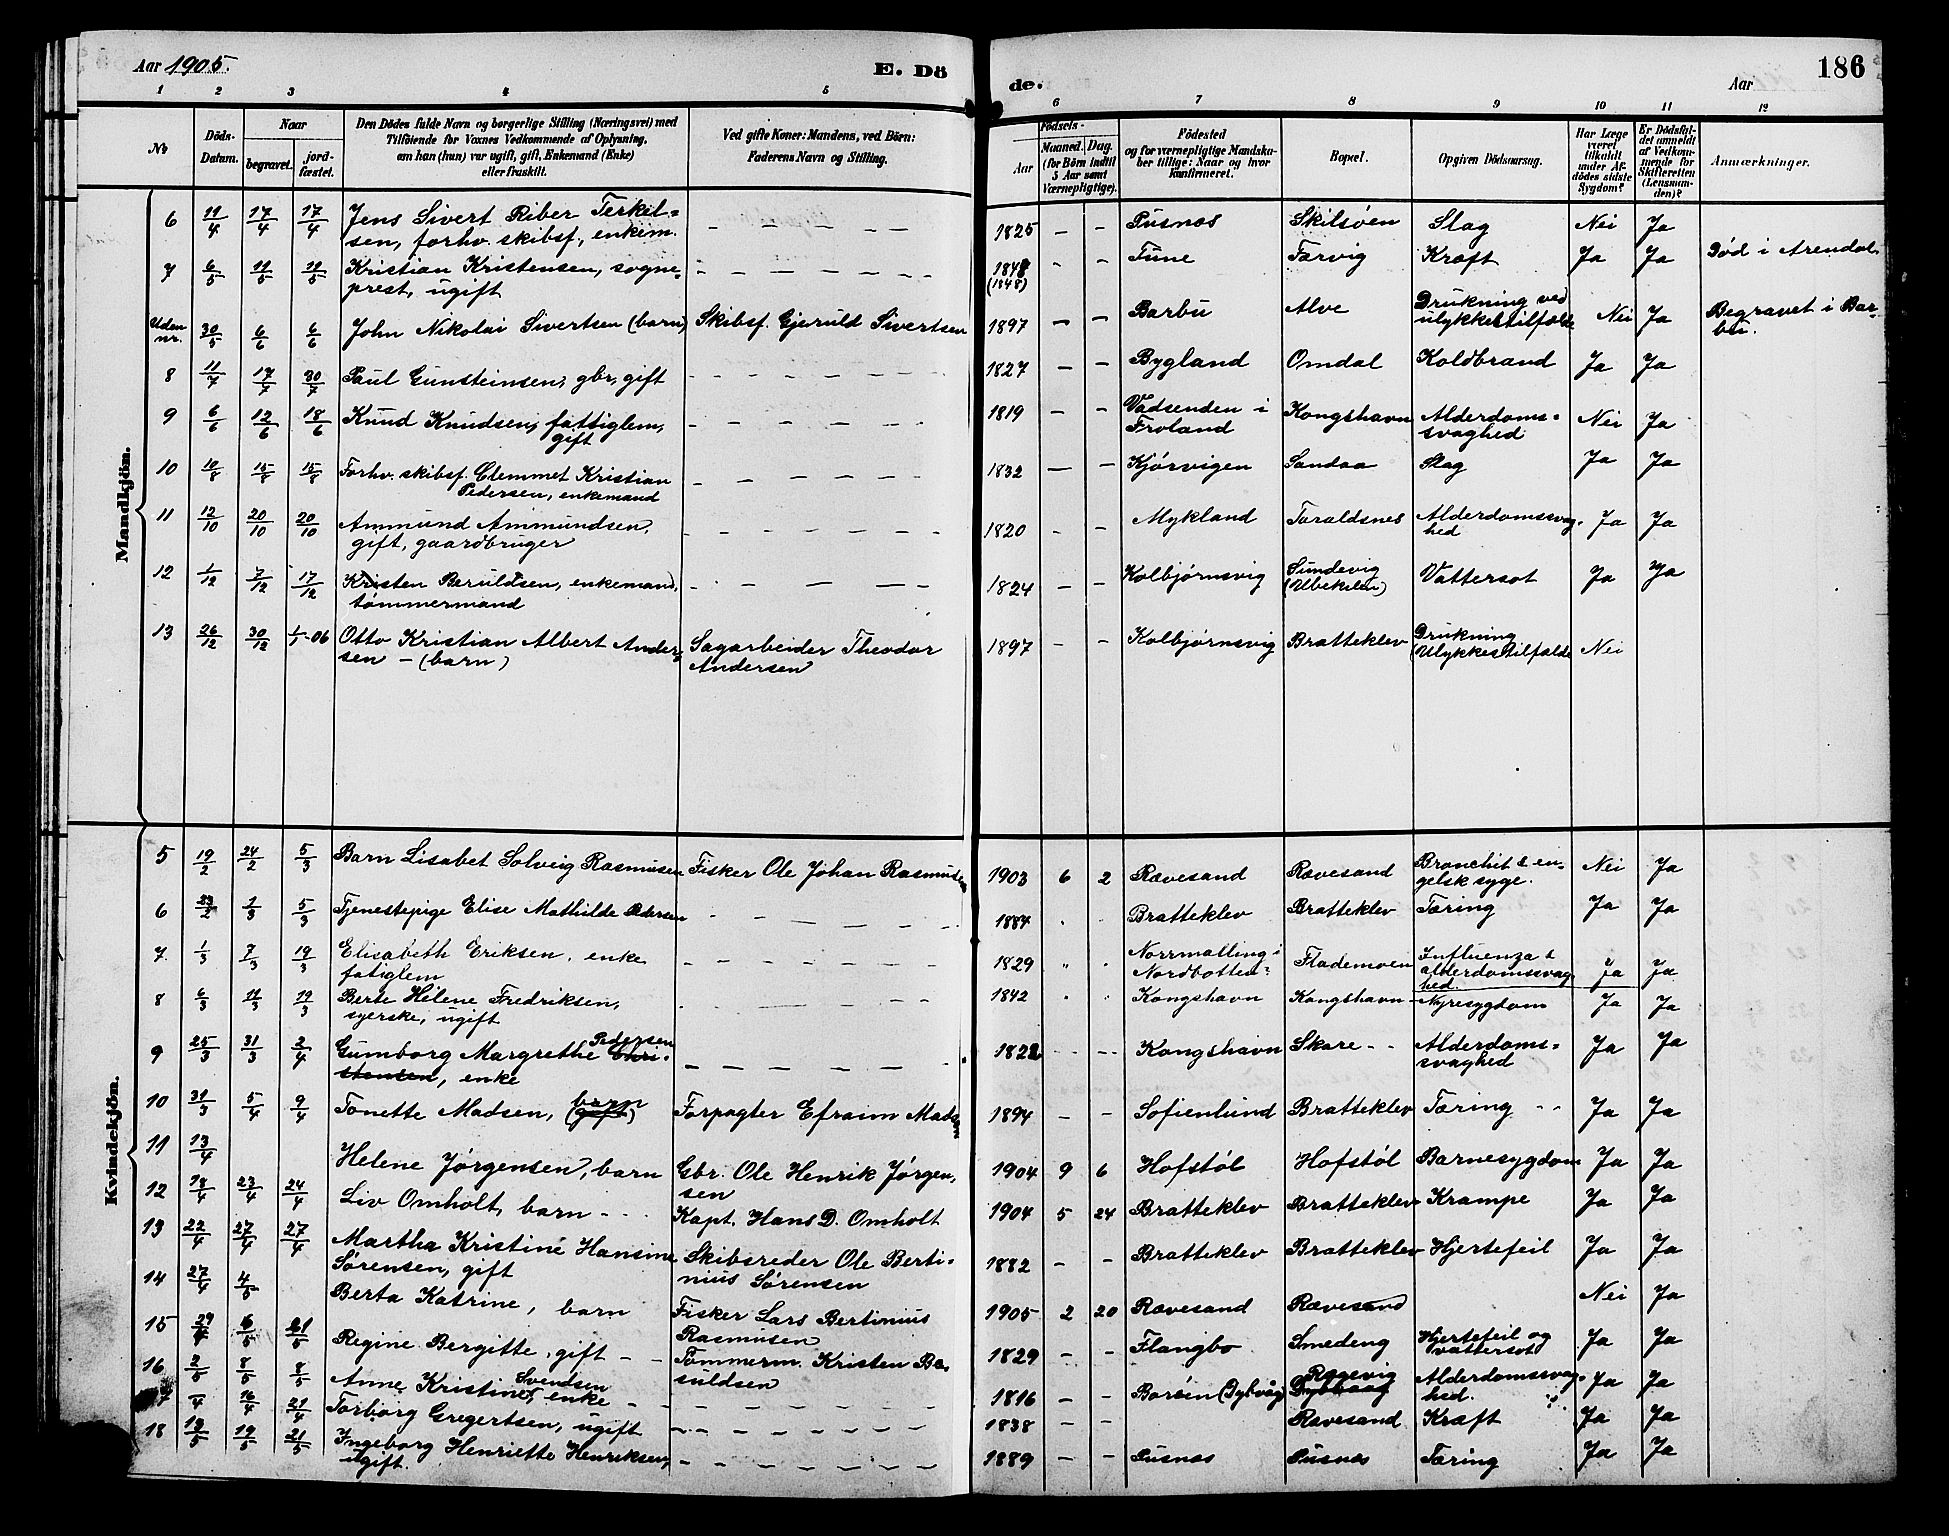 Aar 1905.
E. Dö
de.
Aar
186
1 2 3 4 5 6 7 8 9 10 11 12
No
Döds-Datum.
Naar
begravet.
jord-fæstet.
Den Dödes fulde Navn og borgerlige Stilling (Næringsvei) med
Tilföiende for Voxnes Vedkommende af Oplysning,
om han (hun) var ugift, gift, Enkemand (Enke)
eller fraskilt.
Ved gifte Koner: Mandens, ved Börn:
Faderens Navn og Stilling.
Födsels-
Aar
Maaned. Dag.
(for Börn indtil
5 Aar samt
Værnepligtige).
Födested
og for værnepligtige Mandska-
ber tillige: Naar og hvor
konfirmeret.
Bopæl.
Opgiven Dödsaarsag.
Har Læge
været
tilkaldt
under Af-
dödes sidste
Sygdom?
Er Dödsfal-
det anmeldt
af Vedkom-
mende for
Skifteretten
(Lensman-
den)?
Anmærkninger.
Mandkjön.
6 11/4 17/4 17/4 Jens Sivert Riber Terkel= – – – – – 1825 – – Pusnes Skilsöen Slag Nei Ja
sen, forhv. skibsf., enkem.
7 6/5 11/5 11/5 Kristian Kristensen, sogne= – – – – – 1848 - - Tune Farvig Kræft Ja Ja Död i Arendal
prest, ugift (1848)
Uden nr. 30/5 6/6 6/6 John Nikolai Sivertsen (barn) Skibsf. Gjeruld Sivertsen 1897 – – Barbu Alve Drukning ved Nei Ja Begravet i Bar-
ulykkestilfælde bu.
8 11/7 17/7 30/7 Paul Gunsteinsen, gbr, gift – – – – – 1827 – – Bygland Omdal Koldbrand Ja Ja
9 6/6 12/6 18/6 Knud Knudsen, fattiglem, – – – – – 1819 – – Vadsenden i Kongshavn Alderdoms= Nei Ja
gift Froland svaghed
10 10/8 15/8 15/8 Forhv. skibsf. Clemmet Kristian – – – – – 1832 – – Kjørvigen Sandaa Slag Ja Ja
Pedersen, enkemand
11 12/10 20/10 20/10 Ammund Ammundsen, – – – – – 1820 - - Mykland Taraldsnes Alderdomssvag- Ja Ja
gift, gaardbruger hed
12 1/12 7/12 17/12 Kristen Beruldsen, enkemand, – – – – 1824 – – Kolbjørnsvig Sundevig Vattersot Ja Ja
tømmermand (Ubekilen)
13 26/12 30/12 1/1-06 Otto Kristian Albert Ander= Sagarbeider Theodor 1897 – - Kolbjørnsvig Bratteklev Drukning Nei
sen – (barn) Andersen (Ulykkestilfælde
Kvindekjön.
5 19/2 24/2 5/3 Barn Lisabet Solveig Rasmusen Fisker Ole Johan Rasmusen 1903 6 2 Rævesand Rævesand Bronchit & en- Nei Ja
gelsk syge.
6 23/2 1/3 5/3 Tjenestepige Elise Mathilde Pedersen – – – – 1884 . . Bratteklev Bratteklev Tæring Ja Ja
7. 1/3 7/3 19/3 Elisabeth Eriksen, enke – – – – – 1829 " . Norrmalling i Flademoen Influenza & Ja Ja
fatiglem Nordbotten= alderdomssvag
hed.
8 6/3 11/3 19/3 Berte Helene Fredriksen, – – – – 1842 . . Kongshavn Kongshavn – Nyresygdom Ja Ja
syerske, ugift
Pedersen
9 25/3 31/3 2/4 Gumborg Margrethe Chri- – – – – – 1822 – – Kongshavn Skare - - Alderdoms= Ja Ja
stensen, enke svaghed
barn
10 31/3 5/4 9/4 Tonette Madsen, (gift) Forpagter Efraim Madsen 1894 – – Sofienlund Bratteklev Tæring - - Ja Ja
11 13/4 Helene Jørgensen, barn Gbr. Ole Henrik Jørgen, 1904 9 6 Hofstøl Hofstøl Barnesygdom Ja Ja
sen
12 18/4 23/4 24/4 Liv Omholt, barn - - Kapt. Hans D. Omholt 1904 5 24 Bratteklev Bratteklev Krampe Ja Ja
13 22/4 27/4 27/4 Martha Kristine Hansine Skibsreder Ole Berti- 1882 – – Bratteklev Bratteklev Hjertefeil Ja Ja
Sørensen, gift nius Sørensen
14 27/4 4/5 Berta Katrine, barn Fisker Lars Bertinius 1905 2 20 Rævesand Rævesand Nei Ja
Rasmusen
15 29/4 6/5 21/5 Regine Bergitte, gift – – Tømmerm. Kristen Be- 1829 – – Flangbo Smedeng Hjertefeil og Ja Ja
suldsen vattersot
16 2/5 8/5 8/5 Anne Kristine Svendsen, enke – – – – 1816 – – Borøen (Dybvåg) Rægevig Alderdomssvag- Ja Ja
Dybvaag hed.
7 /4 16/4 21/4 Torborg Gregertsen, ugift – – – – 1838 – – Rævesand Kræft ? Ja Ja
18 12/5 19/5 21/5 Ingeborg Henriette Henriksen, – – – – – 1889 – – Pusnes Pusnes Tæring Ja Ja
ugift.